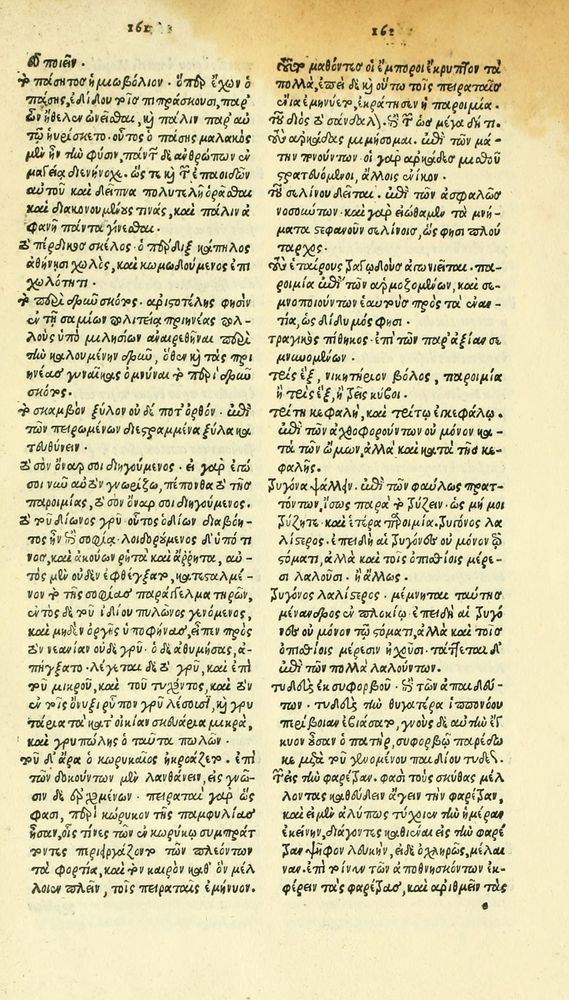 161
οῦ ποιεῖν.
τὸ πάσητος ἡμιωβόλιον. ὅπερ ἔχων ὁ
πάσης, ἐδίδου τοῖς πιπράσκουσι, παρ'
ὧν ἤθελεν ὠνεῖσθαι, καὶ πάλιν παρ' αυ
τῷ ηὑρίσκετο. οὗτος ὁ πάσης μαλακὸς
μὲν ἦν τὴν φύσιν, πάντων δὲ ἀνθρώπων ἐν
μαγείᾳ διενήνοχε. ὥστε καὶ ἐκ τῶν ἐπαοιδῶν
αὐτοῦ καὶ δεῖπνα πολυτελῆ ὁρᾶσθαι
καὶ διακονουμένους τινὰς, καὶ πάλιν ἀ
φανῆ πάντα γίνεσθαι.
τὸ πέρδικος σκέλος. ὁ πέρδιξ κάπηλος
ἀθήνησι χωλὸς, καὶ κωμωδούμενος ἐπὶ
χωλότητι.
τὸ περὶ δρῦν σκότος. ἀριστοτέλης φησὶν
ἐν τῇ σαμίων πολιτείᾳ πριηνέας πολ-
λοὺς ὑπὸ μιλησίων ἀναιρεθῆναι περὶ
τὴν καλουμένην δρῦν, ὅθεν καὶ τὰς πρι
ηνέας γυναῖκας ὀμνύναι τὸ περὶ δρῦν
σκότος.
τὸ σκαμβὸν ξύλον οὐδέποτ' ὀρθόν. ἐπὶ
τῶν πειρωμένων διεστραμμένα ξύλα κα
τευθύνειν.
τὸ σὸν ὄναρ σοι διηγούμενος. εἰ γὰρ ἐπὶ
σοὶ ναῦ αὖ ἐν γνωρίζω, πέπονθα τὸ τῆς
παροιμίας, τὸ σὸν ὄναρ σοι διηγούμενος.
τὸ τοῦ δίωνος γρῦ. οὗτος ὁ δίων διαβόη-
τος ἦν ἐπὶ σοφίᾳ. λοιδορούμενος δ' ὑπό τι
νος, καὶ ἀκούων ῥητὰ καὶ ἄρρητα, αὐ-
τὸς μὲν οὐδὲν ἐφθέγξατο, κατεσταλμέ-
νον τὸ τῆς σοφίας παράδειγμα τηρῶν,
ἐντὸς δὲ τοῦ ἰδίου πυλῶνος γενόμενος,
καὶ μηδὲν ὀργῆς ὑποφήνας, εἶπεν πρὸς
τὸν νεανίαν οὐδὲ γρῦ. ὁ δὲ ἀθυμήσας, ἀ-
πήγξατο. λέγεται δὲ τὸ γρῦ, καὶ ἐπὶ
τοῦ μικροῦ, καὶ τοῦ τυχόντος, καὶ τὸν ἐν
τοῖς ὄνυξι ῥύπον γρῦ λέγουσι, καὶ γρυ
τάρια τὰ κατ' οἰκίαν σκευάρια μικρὰ,
καὶ γρυπώλης ὁ ταῦτα πωλῶν.
τοῦ δ' ἄρα ὁ κωρυκαῖος ἠκροάζετο. ἐπὶ
τῶν δοκούντων μὲν λανθάνειν, εἰς γνῶ-
σιν δὲ ἐρχομένων. πειραταὶ γὰρ ὥς
φασι, περὶ κώρυκον τῆς παμφυλίας
ἦσαν, οἷς τινες τῶν ἐν κωρύκῳ συμπράτ
τοντες περιειργάζοντο τῶν πλεόντων
τὰ φορτία, καὶ τὸν καιρὸν καθ' ὃν μέλ
λοιεν πλεῖν, τοῖς πειραταῖς ἐμήνυον.
162
τοῦτο μαθόντες οἱ ἔμποροι ἔκρυπτον τὰ
πολλὰ, ἐπεὶ δὲ καὶ οὕτω τοῖς πειραταῖς
ἔνια ἐμηνύετο, ἐκράτησεν ἡ παροιμία.
τοῦ διὸς τὸ σάνδαλον. ἐπὶ τῶν ὡς μέγα δή τι.
τοὺς ἀρκάδας μιμήσομαι. ἐπὶ τῶν μά-
την πονούντων. οἱ γὰρ ἀρκάδες μισθοῦ
στρατευόμενοι, ἄλλοις ἐνίκων.
τοῦ σελίνου δεῖται. ἐπὶ τῶν ἀσφαλῶς
νοσούντων. καὶ γὰρ εἰώθαμεν τὰ μνή-
ματα στεφανοῦν σελίνοις, ὥς φησι πλού
ταρχος.
τοὺς ἑταίρους τραγωδοὺς ἀγωνιεῖται. πα-
ροιμία ἐπὶ τῶν ἁρμοζομένων, καὶ σε-
μνοποιούντων ἑαυτοὺς πρὸς τὰ ἐναν-
τία, ὡς δίδυμός φησι.
τραγικὸς πίθηκος. ἐπὶ τῶν παρ' ἀξίαν σε
μνυνομένων.
τρεῖς ἓξ, νικητήριον βόλος, παροιμία
ἢ τρεῖς ἓξ, ἢ τρεῖς κύβοι.
τρίτη κεφαλὴ, καὶ τρίτῳ ἐγκεφάλῳ.
ἐπὶ τῶν ἀχθοφορούντων οὐ μόνον κα-
τὰ τῶν ὤμων, ἀλλὰ καὶ κατὰ τῆς κε-
φαλῆς.
τρυγόνα ψάλλειν. ἐπὶ τῶν φαύλως πρατ-
τόντων, ἴσως παρὰ τὸ τρύζειν. ὡς μή μοι
τρύζητε. καὶ ἑτέρα παροιμία. τρυγόνος λα
λίστερος. ἐπειδὴ αἱ τρυγόνες οὐ μόνον τῷ
στόματι, ἀλλὰ καὶ τοῖς ὀπισθίοις μέρε-
σι λαλοῦσι. ἢ ἄλλως.
τρυγόνος λαλίστερος. μέμνηται ταύτης
μένανδρος ἐν πλοκίῳ. ἐπειδὴ αἱ τρυγό
νες οὐ μόνον τῷ στόματι, ἀλλὰ καὶ τοῖς
ὀπισθίοις μέρεσιν ἠχοῦσι. τάττεται δ'
ἐπὶ τῶν πολλὰ λαλούντων.
τυδεὺς ἐκ συφορβοῦ. ἐπὶ τῶν ἀπαιδεύ-
των. τυδεὺς τὴν θυγατέρα ἱππονόου
περίβοιαν ἐβιάσατο, γνοὺς δὲ αὐτὴν ἔγ
κυον οὖσαν ὁ πατὴρ, συφορβῷ παρέδω
κε μετὰ τοῦ γενομένου παιδίου τυδέως.
τῶν εἰς τὴν φαρέτραν. φασὶ τοὺς σκύθας μέλ
λοντας καθεύδειν ἄγειν τὴν φαρέτραν,
καὶ εἰ μὲν ἀλύπως τύχοιεν τὴν ἡμέραν
ἐκείνην, διάγοντες καθιέναι εἰς τὴν φαρέ
τραν ψῆφον λευκὴν, εἰ δὲ ὀχληρῶς, μέλαι
ναν. ἐπὶ τοίνυν τῶν ἀποθνησκόντων ἐκ-
φέρειν τὰς φαρέτρας, καὶ ἀριθμεῖν τὰς